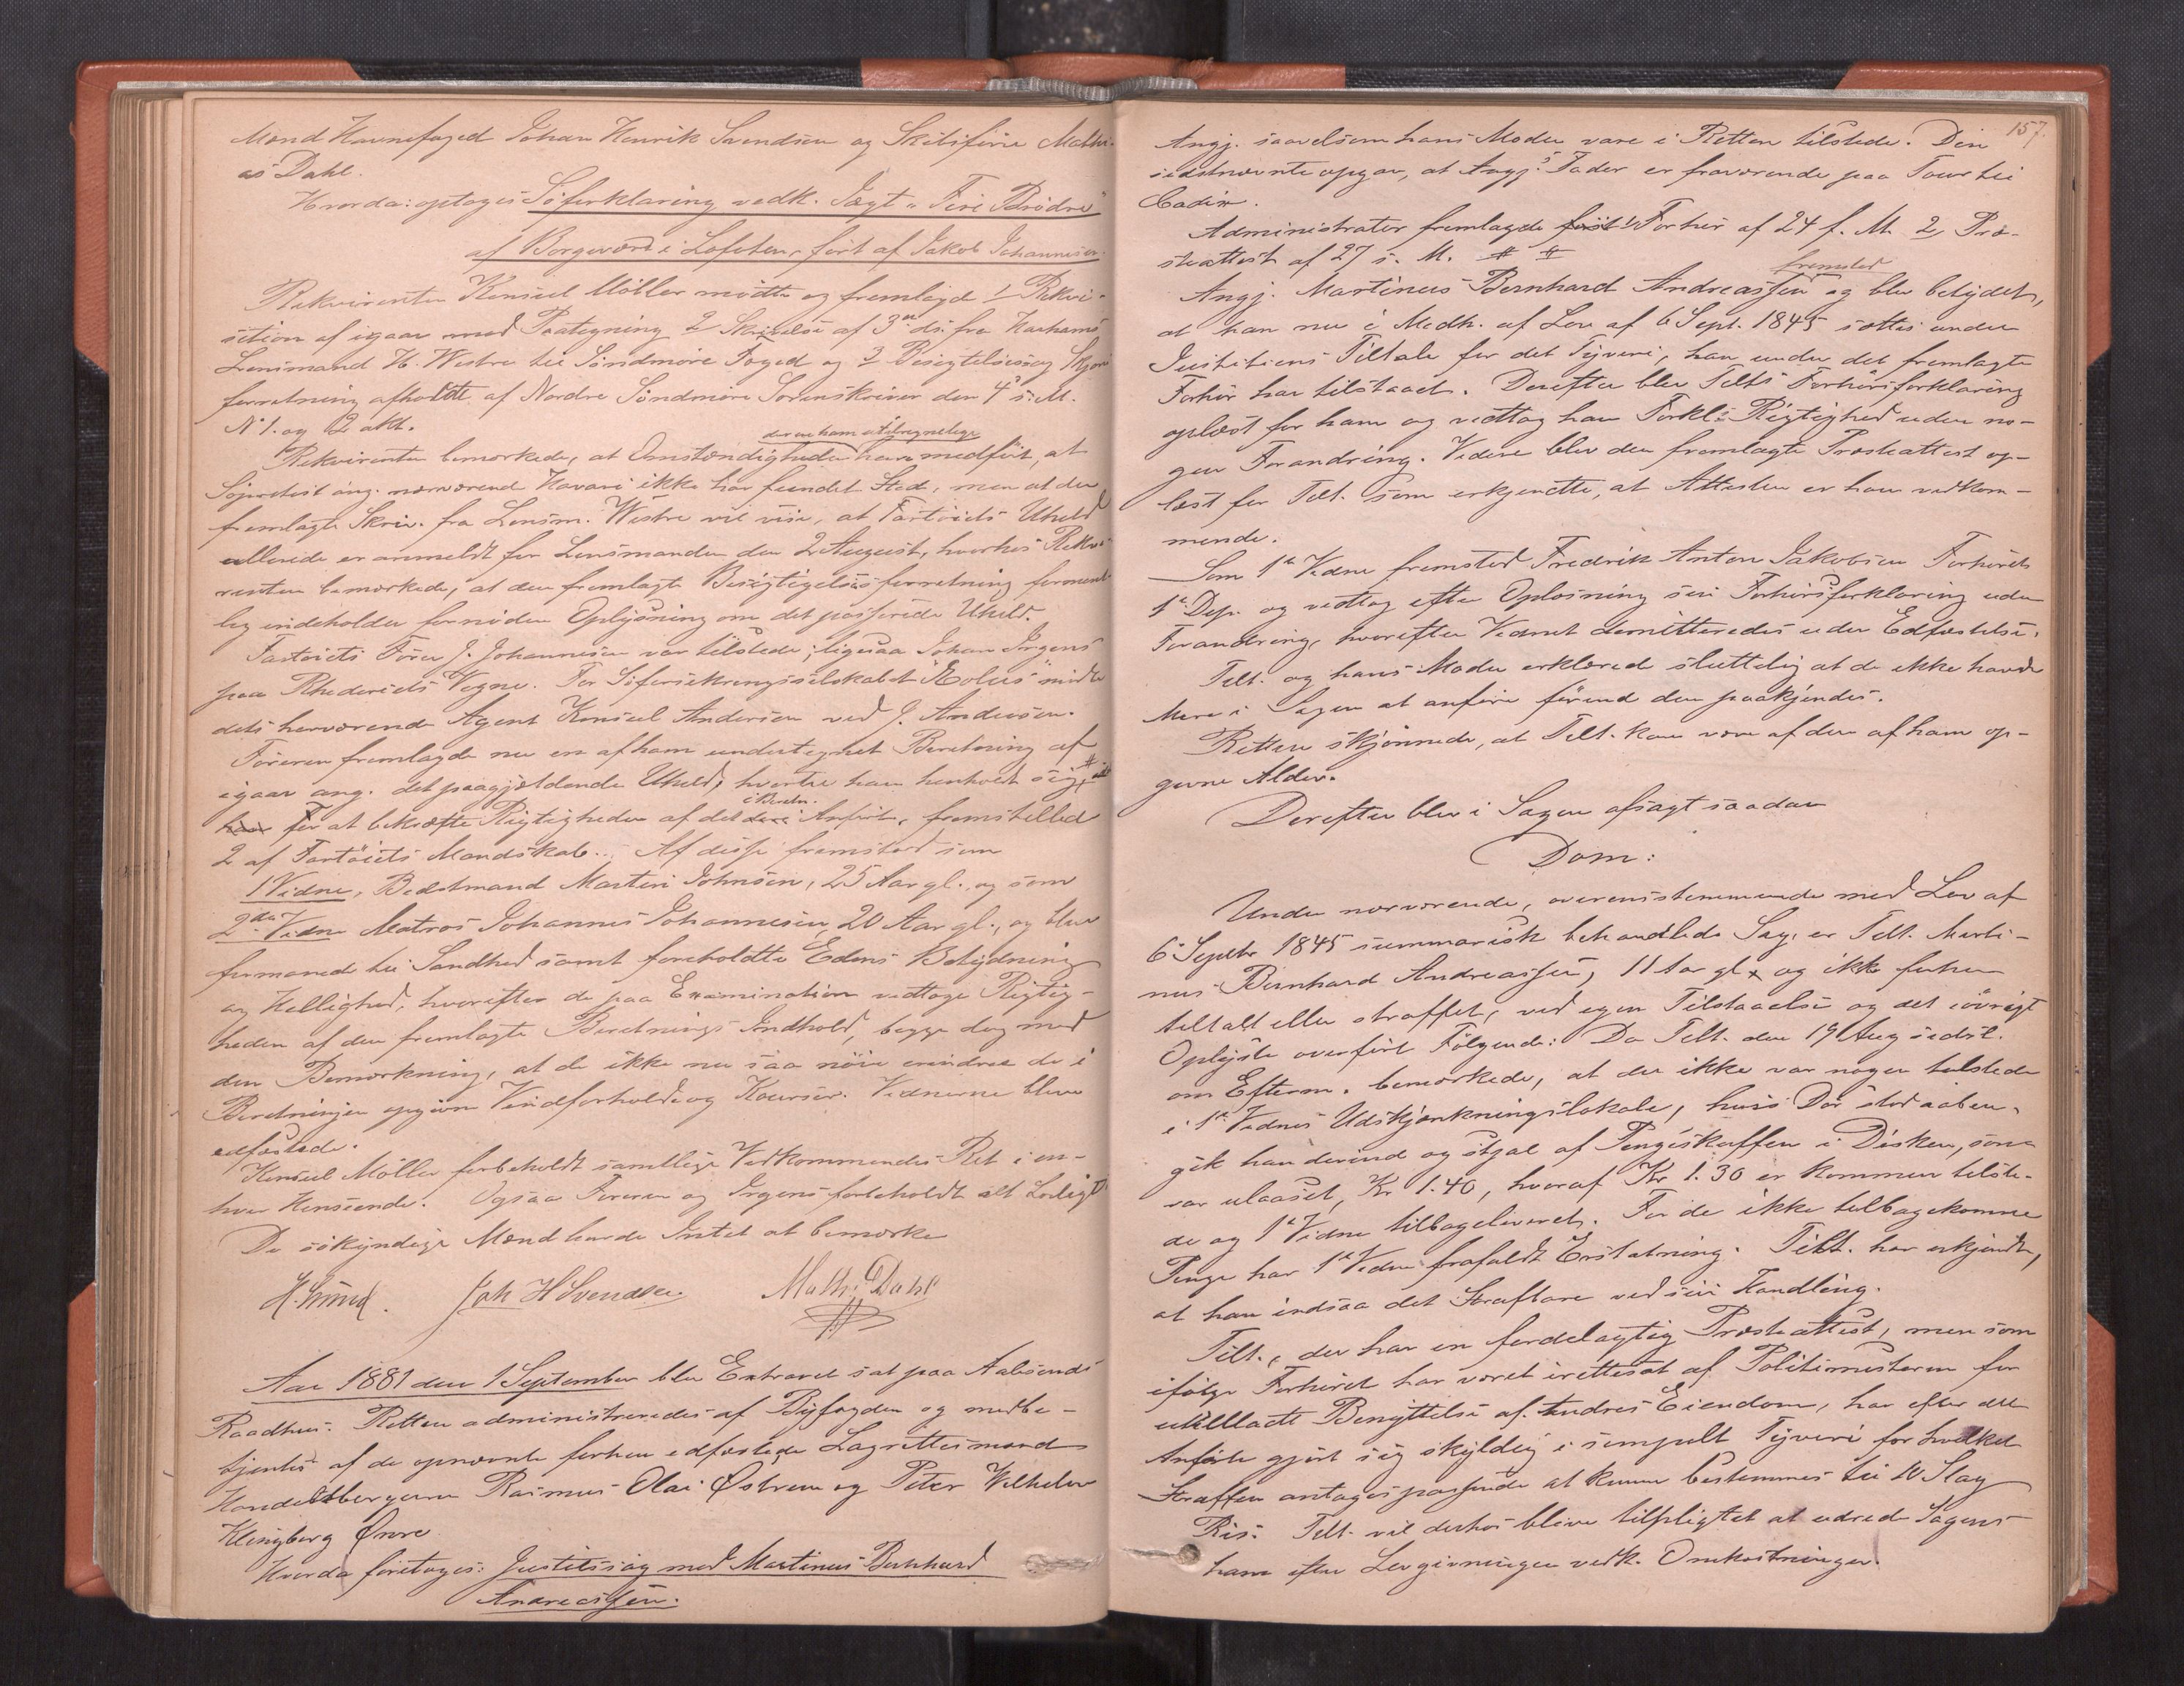 Mænd Havnefoged Johan Henrik Svendsen og Skibsfører Mathi-
as Dahl.
Hvorda: optoges Søforklaring vedk. Jægt „Fire Brødre"
af Borgevær i Lofoten, ført af Jakob Johannesen.
Rekvirenten Konsul Møller mødte og fremlagde 1 Rekvi-
sition af igaar med Paategning 2 Skrivelse af 3die ds. fra Harhams
Lensmand H. Westre til Søndmøre Foged og 3 Besigtelses og Skjøns
forretning afholdt af Nordre Søndmøre Sorenskriver den 4' s. M.
N° 1. og 2 akt.
Rekvirenten bemærkede, at Omstændigheder, der ere ham utilregnelige have medført, at
Søprotest ang. nærværend Havari ikke har fundet Sted, men at den
fremlagte Skriv. fra Lensm. Westre vil vise, at Fartøiets Uheld
allerede er anmeldt for Lensmanden den 2 August, hvorhos Rekvi-
renten bemærkede, at den fremlagte Besigtigelsesforretning forment-
lig indeholder fornøden Oplysning om det passerede Uheld.
Fartøiets Fører J. Johannesen var tilstede; ligesaa Johan Jrgens
paa Rhederiets Vegne. For Søforsikringsselskabet "Æolus" mødte
dets herværende Agent Konsul Andersen ved J. Andersen.
Føreren fremlagde nu en af ham undertegnet Beretning af
igaar ang. det paagjældende Uheld, hvortil han henholdt sig,
for at bekræfte Rigtigheden af det i Beretn. Anførte, fremstilled
2 af Fartøiets Mandskab. Af disse fremstod som
1 Vidne, Bedstmand Martin Johnsen, 25 Aar gl., og som
2det Vidne Matros Johannes Johannesen, 20 Aar gl., og blev
formaned til Sandhed samt foreholdte Edens Betydning
og Hellighed, hvorefter de paa Examination vedtoge Rigtig-
heden af den fremlagte Beretnings Indhold, begge dog med
den Bemærkning, at de ikke nu saa nøie erindrer de i
Beretningen opgivne Vindforholde og Kourser. Vidnerne bleve
edfæstede.
Konsul Møller forbeholdt samtlige Vedkommendes Ret i en-
hver Henseende. Ogsaa Føreren og Jrgens forbeholdt alt Lovligt.
De søkyndige Mænd havde Intet at bemærke
Joh H Svendsen. Maths Dahl
Aar 1881 den 1 September blev Extraret sat paa Aalesunds
Raadhus. Retten administreredes af Byfogden og medbe-
tjentes af de opnævnte forhen edfæstede Lagrettesmænd
Handelsborgerne Rasmus Olai Østrem og Peter Wilhelm
Klingberg Ønre
Hvorda foretoges: Justitssag mod Martinus Bernhard
Andreassen.
157.
Angj. saavelsom hans Moder vare i Retten tilstede. Den
sidstnævnte opgav, at Angj.s Fader er fraværende paa Tour til
Cadix.
Administrator fremlagde 1, Forhør af 24 f. M. 2, Præ-
steattest af 27 s. M.
Angj. Martinus Bernhard Andreassen fremstod og blev betydet,
at han nu i Medh. af Lov af 6 Sept. 1845 sættes under
Justitiens Tiltale for det Tyveri, han under det fremlagte
Forhør har tilstaaet. Derefter blev Telts Forhørsforklaring
oplæst for ham og vedtog han Forkl.s Rigtighed uden no-
gen Forandring. Videre blev den fremlagte Præsteattest op-
læst for Telt. som erkjendte, at Attesten er ham vedkom-
mende.
Som 1ste Vidne fremstod Fredrik Anton Jakobsen Forhørets
1ste Dep. og vedtog efter Oplæsning sin Forhørsforklaring uden
Forandring, hvorefter Vidnet demitteredes uden Edfæstelse.
Telt. og hans Moder erklæred sluttelig at de ikke havde
Mere i Sagen at anføre førend den paakjendes.
Retten skjønnede, at Telt. kan være af den af ham op-
givne Alder.
Derefter blev i Sagen afsagt saadan
Dom:
Under nærværende, overensstemmende med Lov af
6 Septbr 1845 summarisk behandlede Sag, er Telt. Marti-
nus Bernhard Andreassen, 11 Aar gl. og ikke forhen
tiltalt eller straffet, ved egen Tilstaaelse og det iøvrigt
Oplyste overført Følgende: Da Telt. den 19 Aug sidstl.
om Efterm. bemærkede, at der ikke var nogen tilstede
i 1ste Vidnes Udskjænkningslokale, hvis Dør stod aaben,
gik han derind og stjal af Pengeskuffen i Disken, som
var ulaaset, Kr 1.40, hvoraf Kr 1.30 er kommen tilste-
de og 1ste Vidne tilbageleveret. For de ikke tilbagekomne
Penge har 1ste Vidne frafaldt Erstatning. Telt. har erkjendt,
at han indsaa det Strafbare ved sin Handling.
Telt., der har en fordelagtig Præsteattest, men som
ifølge Forhøret har været irettesat af Politimesteren for
utilladt Benyttelse af Andres Eiendom, har efter det
Anførte gjort sig skyldig i simpelt Tyveri for hvilket
Straffen antages passende at kunne bestemmes til 10 Slag
Ris. Telt. vil derhos blive tilpligtet at udrede Sagens
ham efter Lovgivningen vedk. Omkostninger.